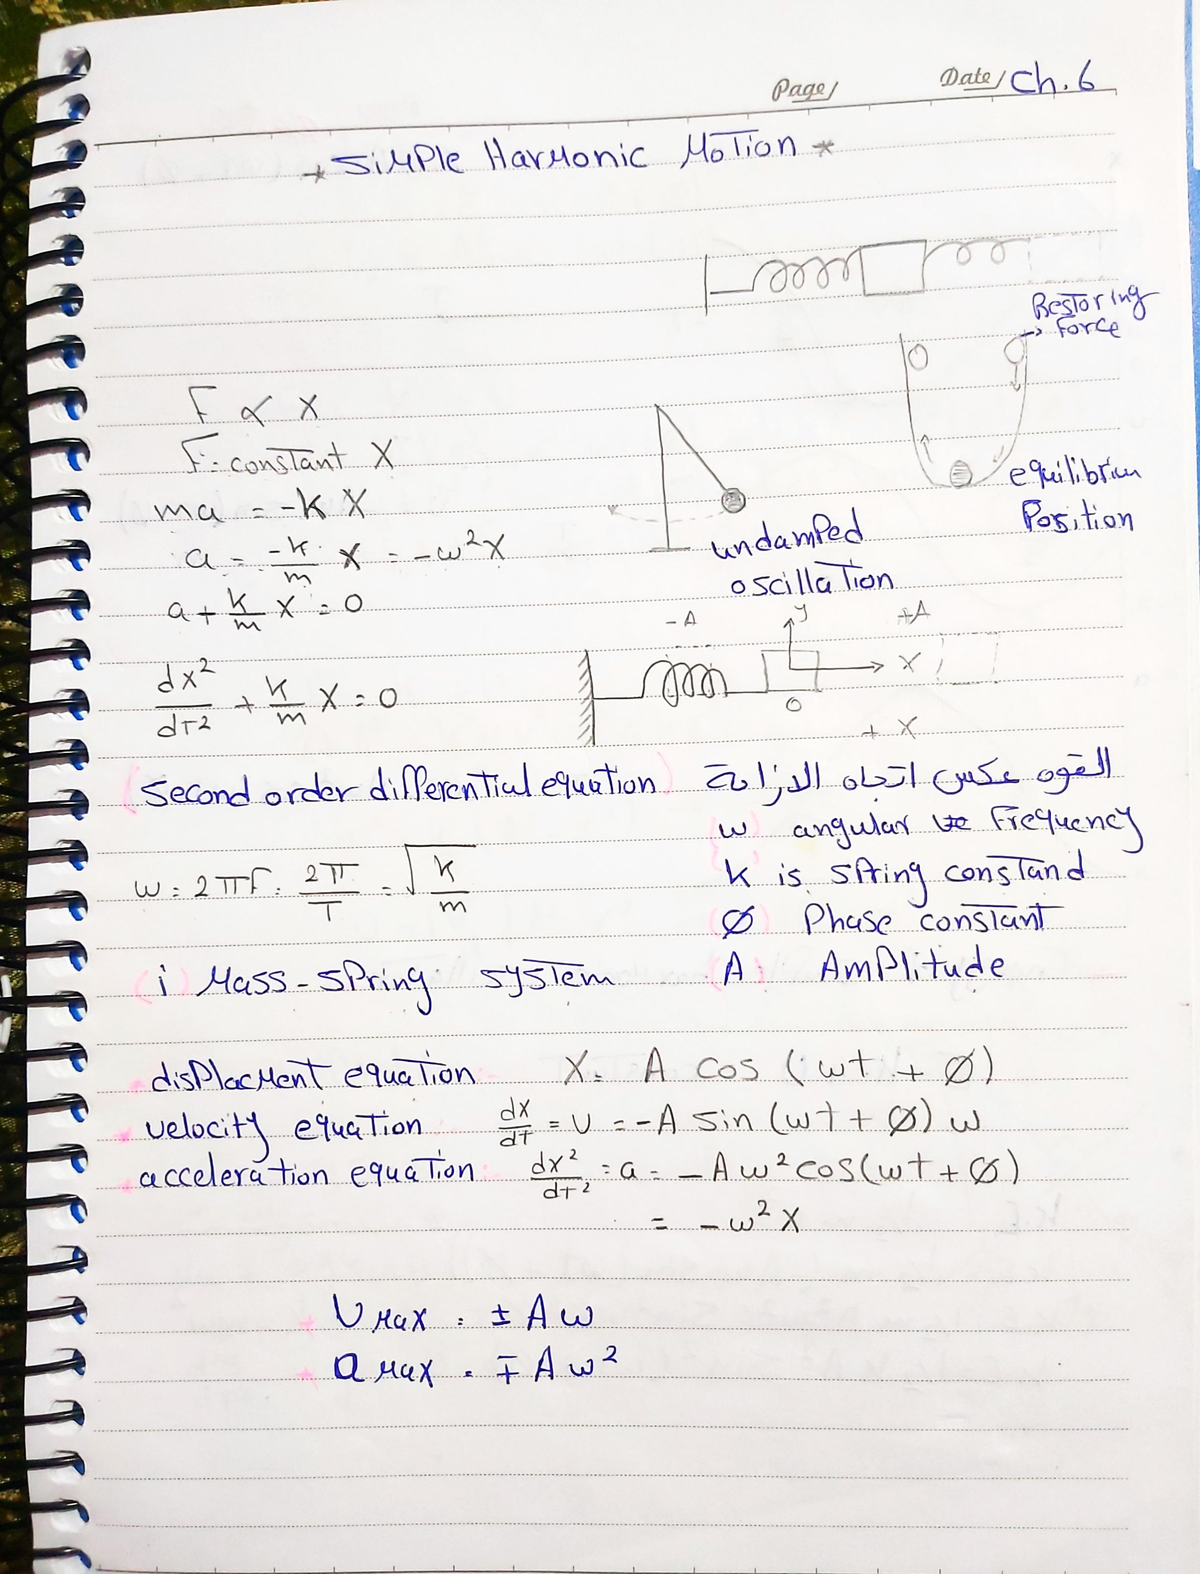 Page/ Date/ Ch. 6
* Simple Harmonic Motion *
Restoring
→ force
F ∝ X
F = constant X
ma = -k X
a = -k/m X = -w²X
a + k/m X = 0
equilibrium
Position
undamped
oscillation
-A y +A
X
O
+ X
dx²/dt² + k/m X = 0
(Second order differential equation)
القوه عكس اتجاه الازاحة
w angular Frequency
k is spring constand
Ø Phase constant
A Amplitude
w = 2πf = 2π/T = √(k/m)
(i) Mass-spring system
displacment equation X = A cos (wt + Ø)
velocity equation dx/dt = v = -A sin (wt + Ø) w
acceleration equation dx²/dt² = a = -Aw² cos(wt + Ø)
= -w² X
* v max = ± A w
* a max = ∓ A w²